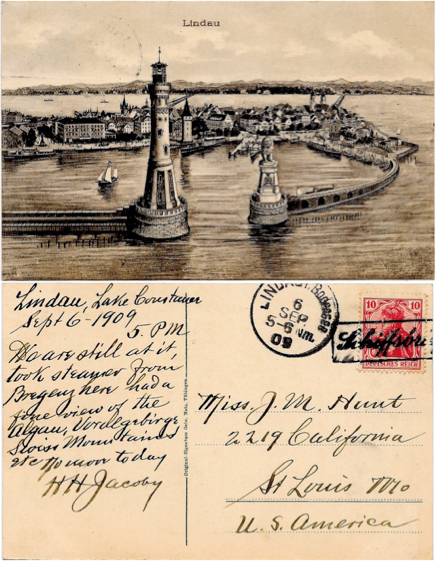 Lindau
Lindau, Lake Constance
Sept 6-1909
5. P.M
We are still at it,
took steamer from
Bregenz here had a
fine view of the
Algau, Vorarlgebirge
Swiss Mountains
etc No moor today
H H Jacoby
LINDAU i. Bodensee
6
SEP
5-6 Nm.
09
10 10
DEUTSCHES REICH
Miss. J. M. Hunt
2219 California
St Louis Mo
U. S. America